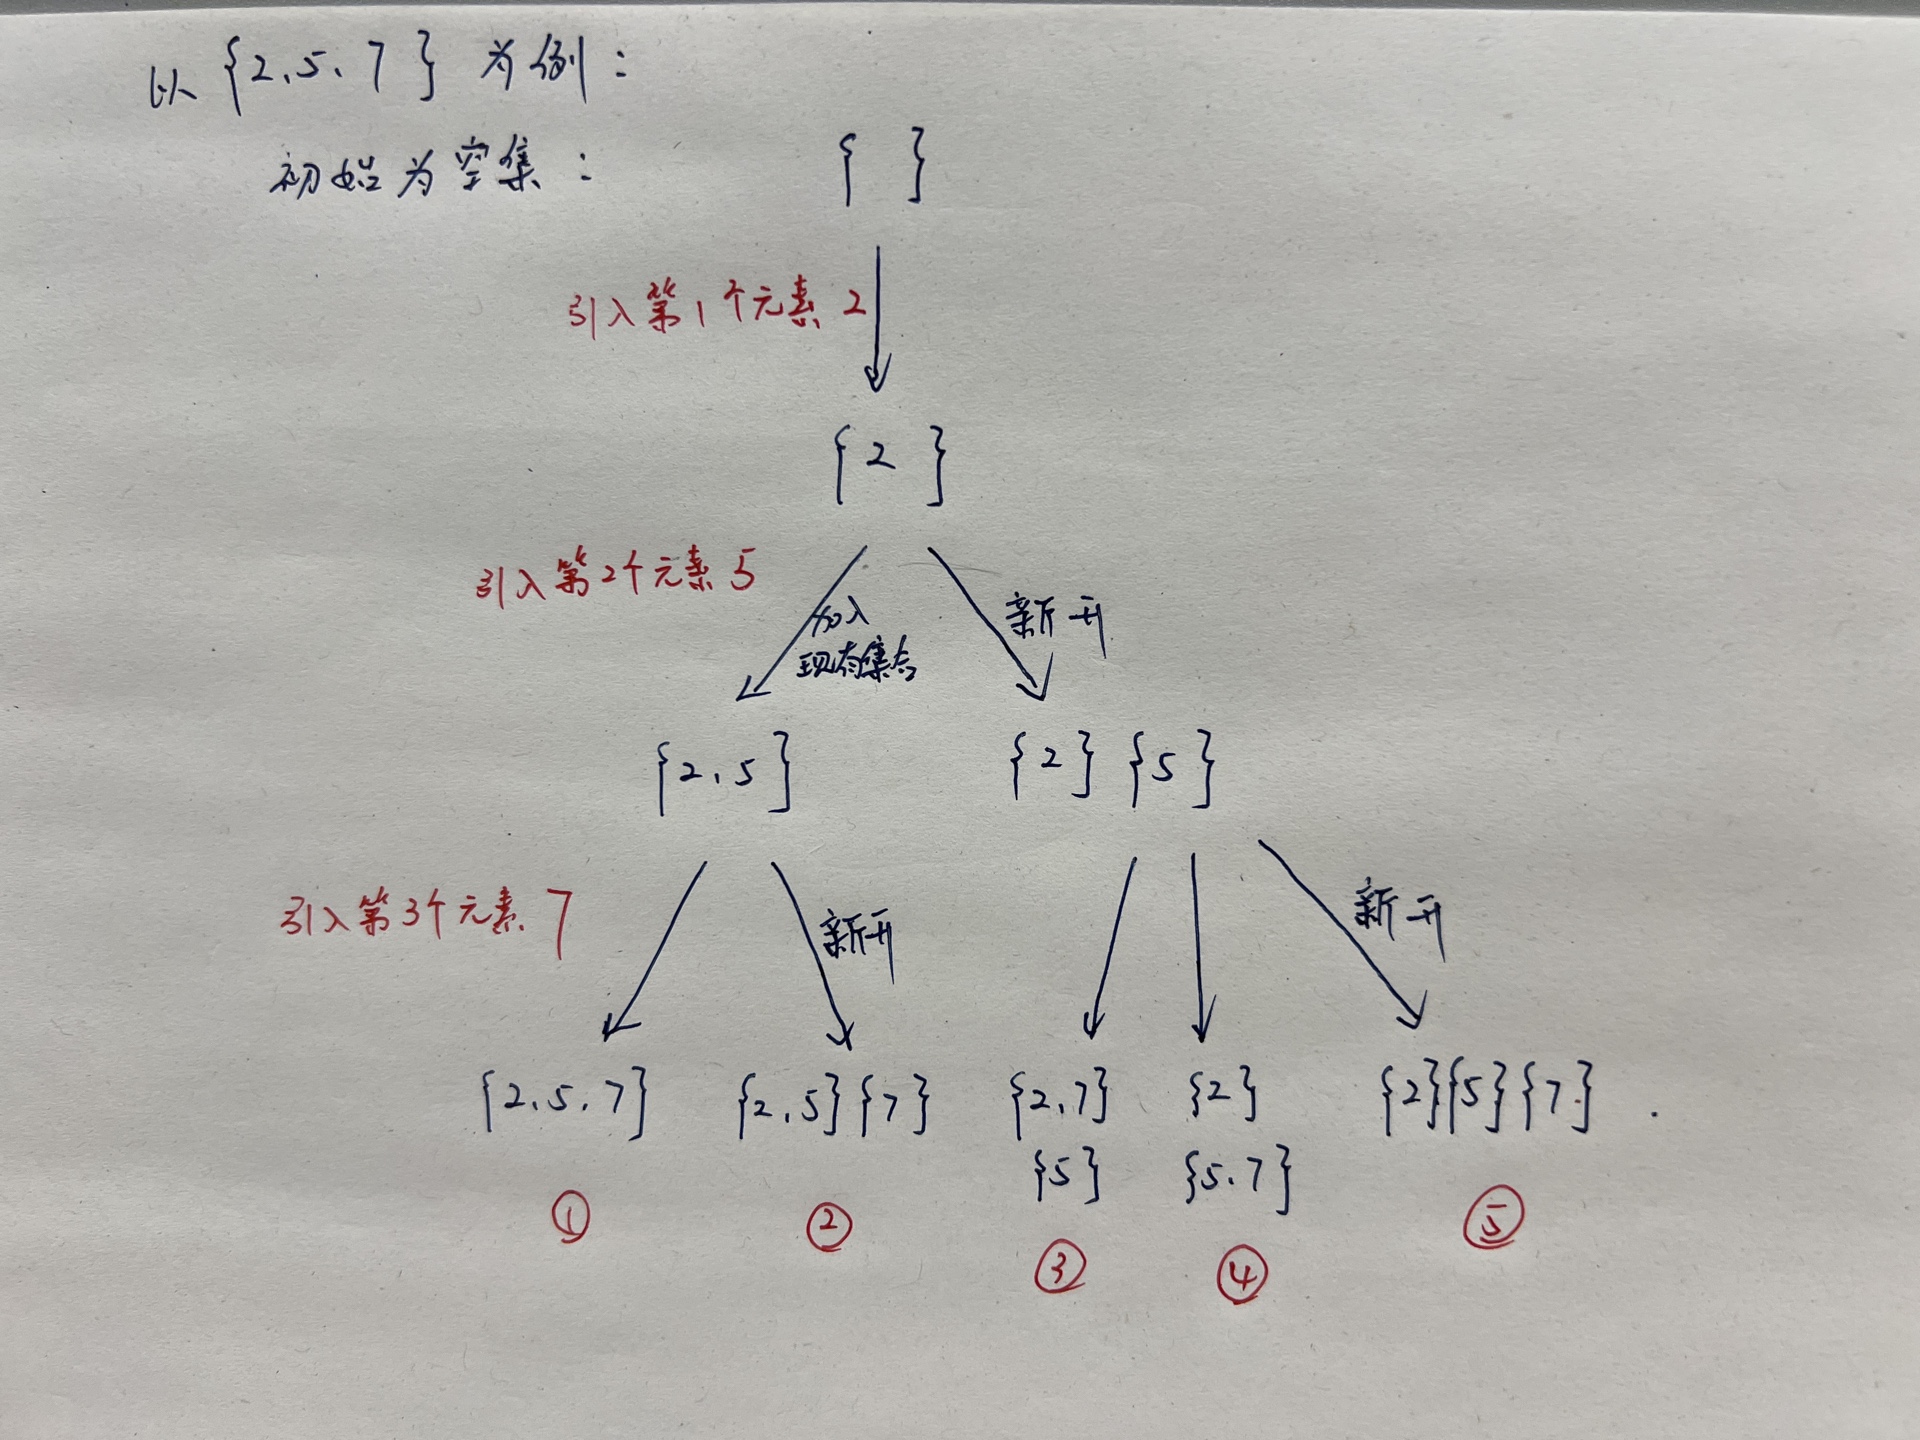 以{2、5、7}为例：
初始为空集： { }
引入第1个元素2
{2 }
引入第2个元素5
加入 新开
现有集合
{2、5} {2} {5}
引入第3个元素7
新开 新开
{2、5、7} {2、5}{7} {2、7} {2} {2}{5}{7}.
{5} {5、7}
① ② ③ ④ ⑤